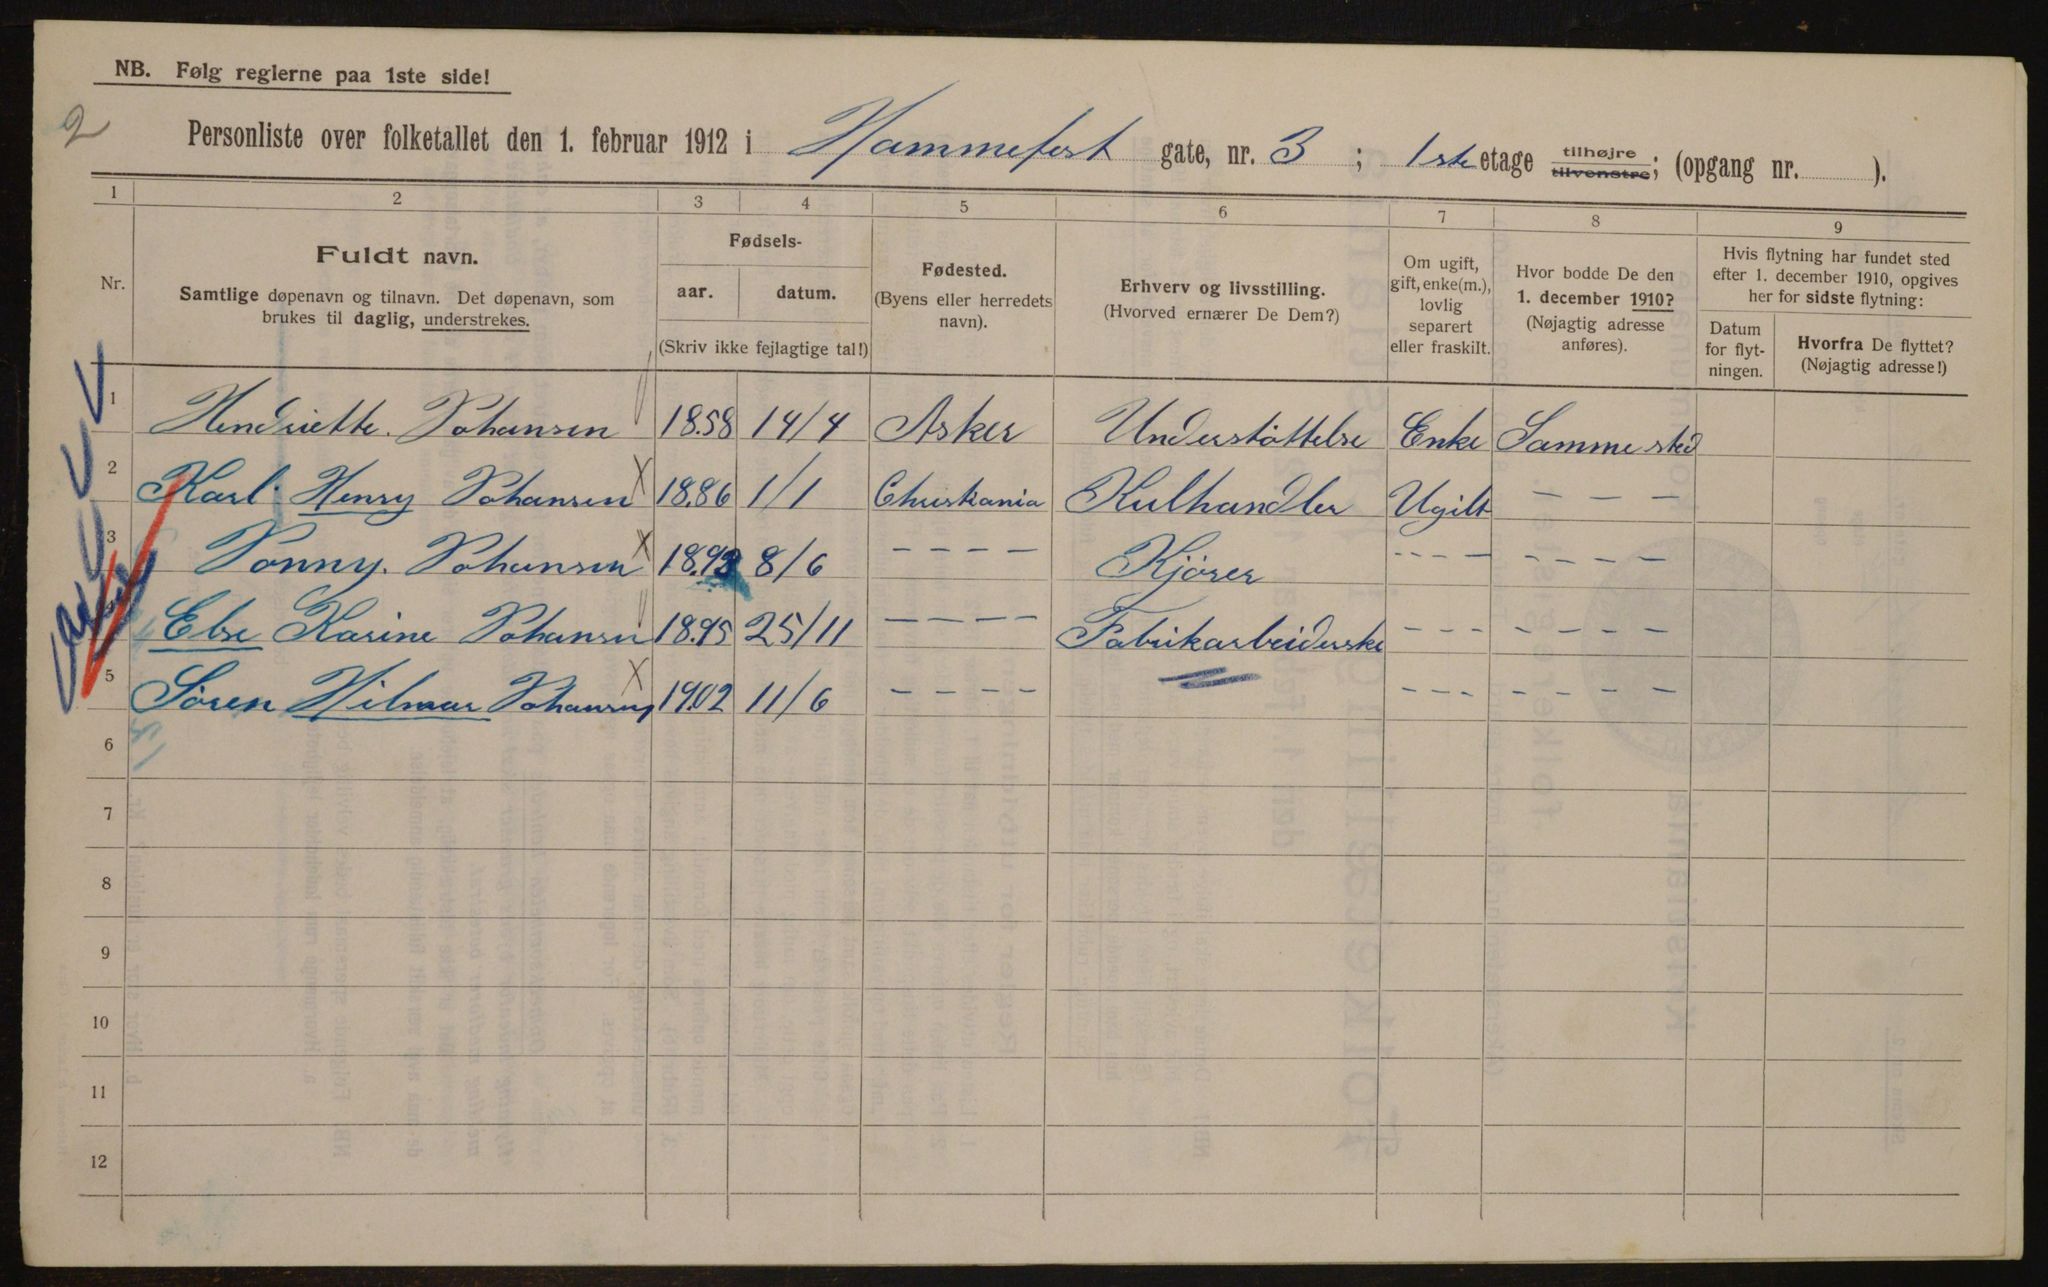 NB. Følg reglerne paa 1ste side!
2
Personliste over folketallet den 1. februar 1912 i Hammefest gate, nr. 3 ; 1ste etage tilhøjre tilvenstre; (opgang nr. ).
1 2 3 4 5 6 7 8 9
Nr.
Fuldt navn.
Samtlige døpenavn og tilnavn. Det døpenavn, som
brukes til daglig, understrekes.
Fødsels-
aar. datum.
(Skriv ikke fejlagtige tal!)
Fødested.
(Byens eller herredets
navn).
Erhverv og livsstilling.
(Hvorved ernærer De Dem?)
Om ugift,
gift, enke(m.),
lovlig
separert
eller fraskilt.
Hvor bodde De den
1. december 1910?
(Nøjagtig adresse
anføres).
Hvis flytning har fundet sted
efter 1. december 1910, opgives
her for sidste flytning:
Datum
for flyt-
ningen.
Hvorfra De flyttet?
(Nøjagtig adresse!)
1 Hendriette. Johansen 1858 14/4 Asker Understöttelse Enke Samme sted
2 Karl. Henry Johansen X 1886 1/1 Christiania Kulhandler Ugift – – – –
3 Jonny. Johansen X 1893 8/6 – – – – Kjörer – – – – – – – –
Else Karine Johansen 1895 25/11 – – – – Fabrikarbeiderske – – – – – – – – –
5 Sören Hilmar Johansen X 1902 11/6 – – – – – – – – – – – – –
6
7
8
9
10
11
12